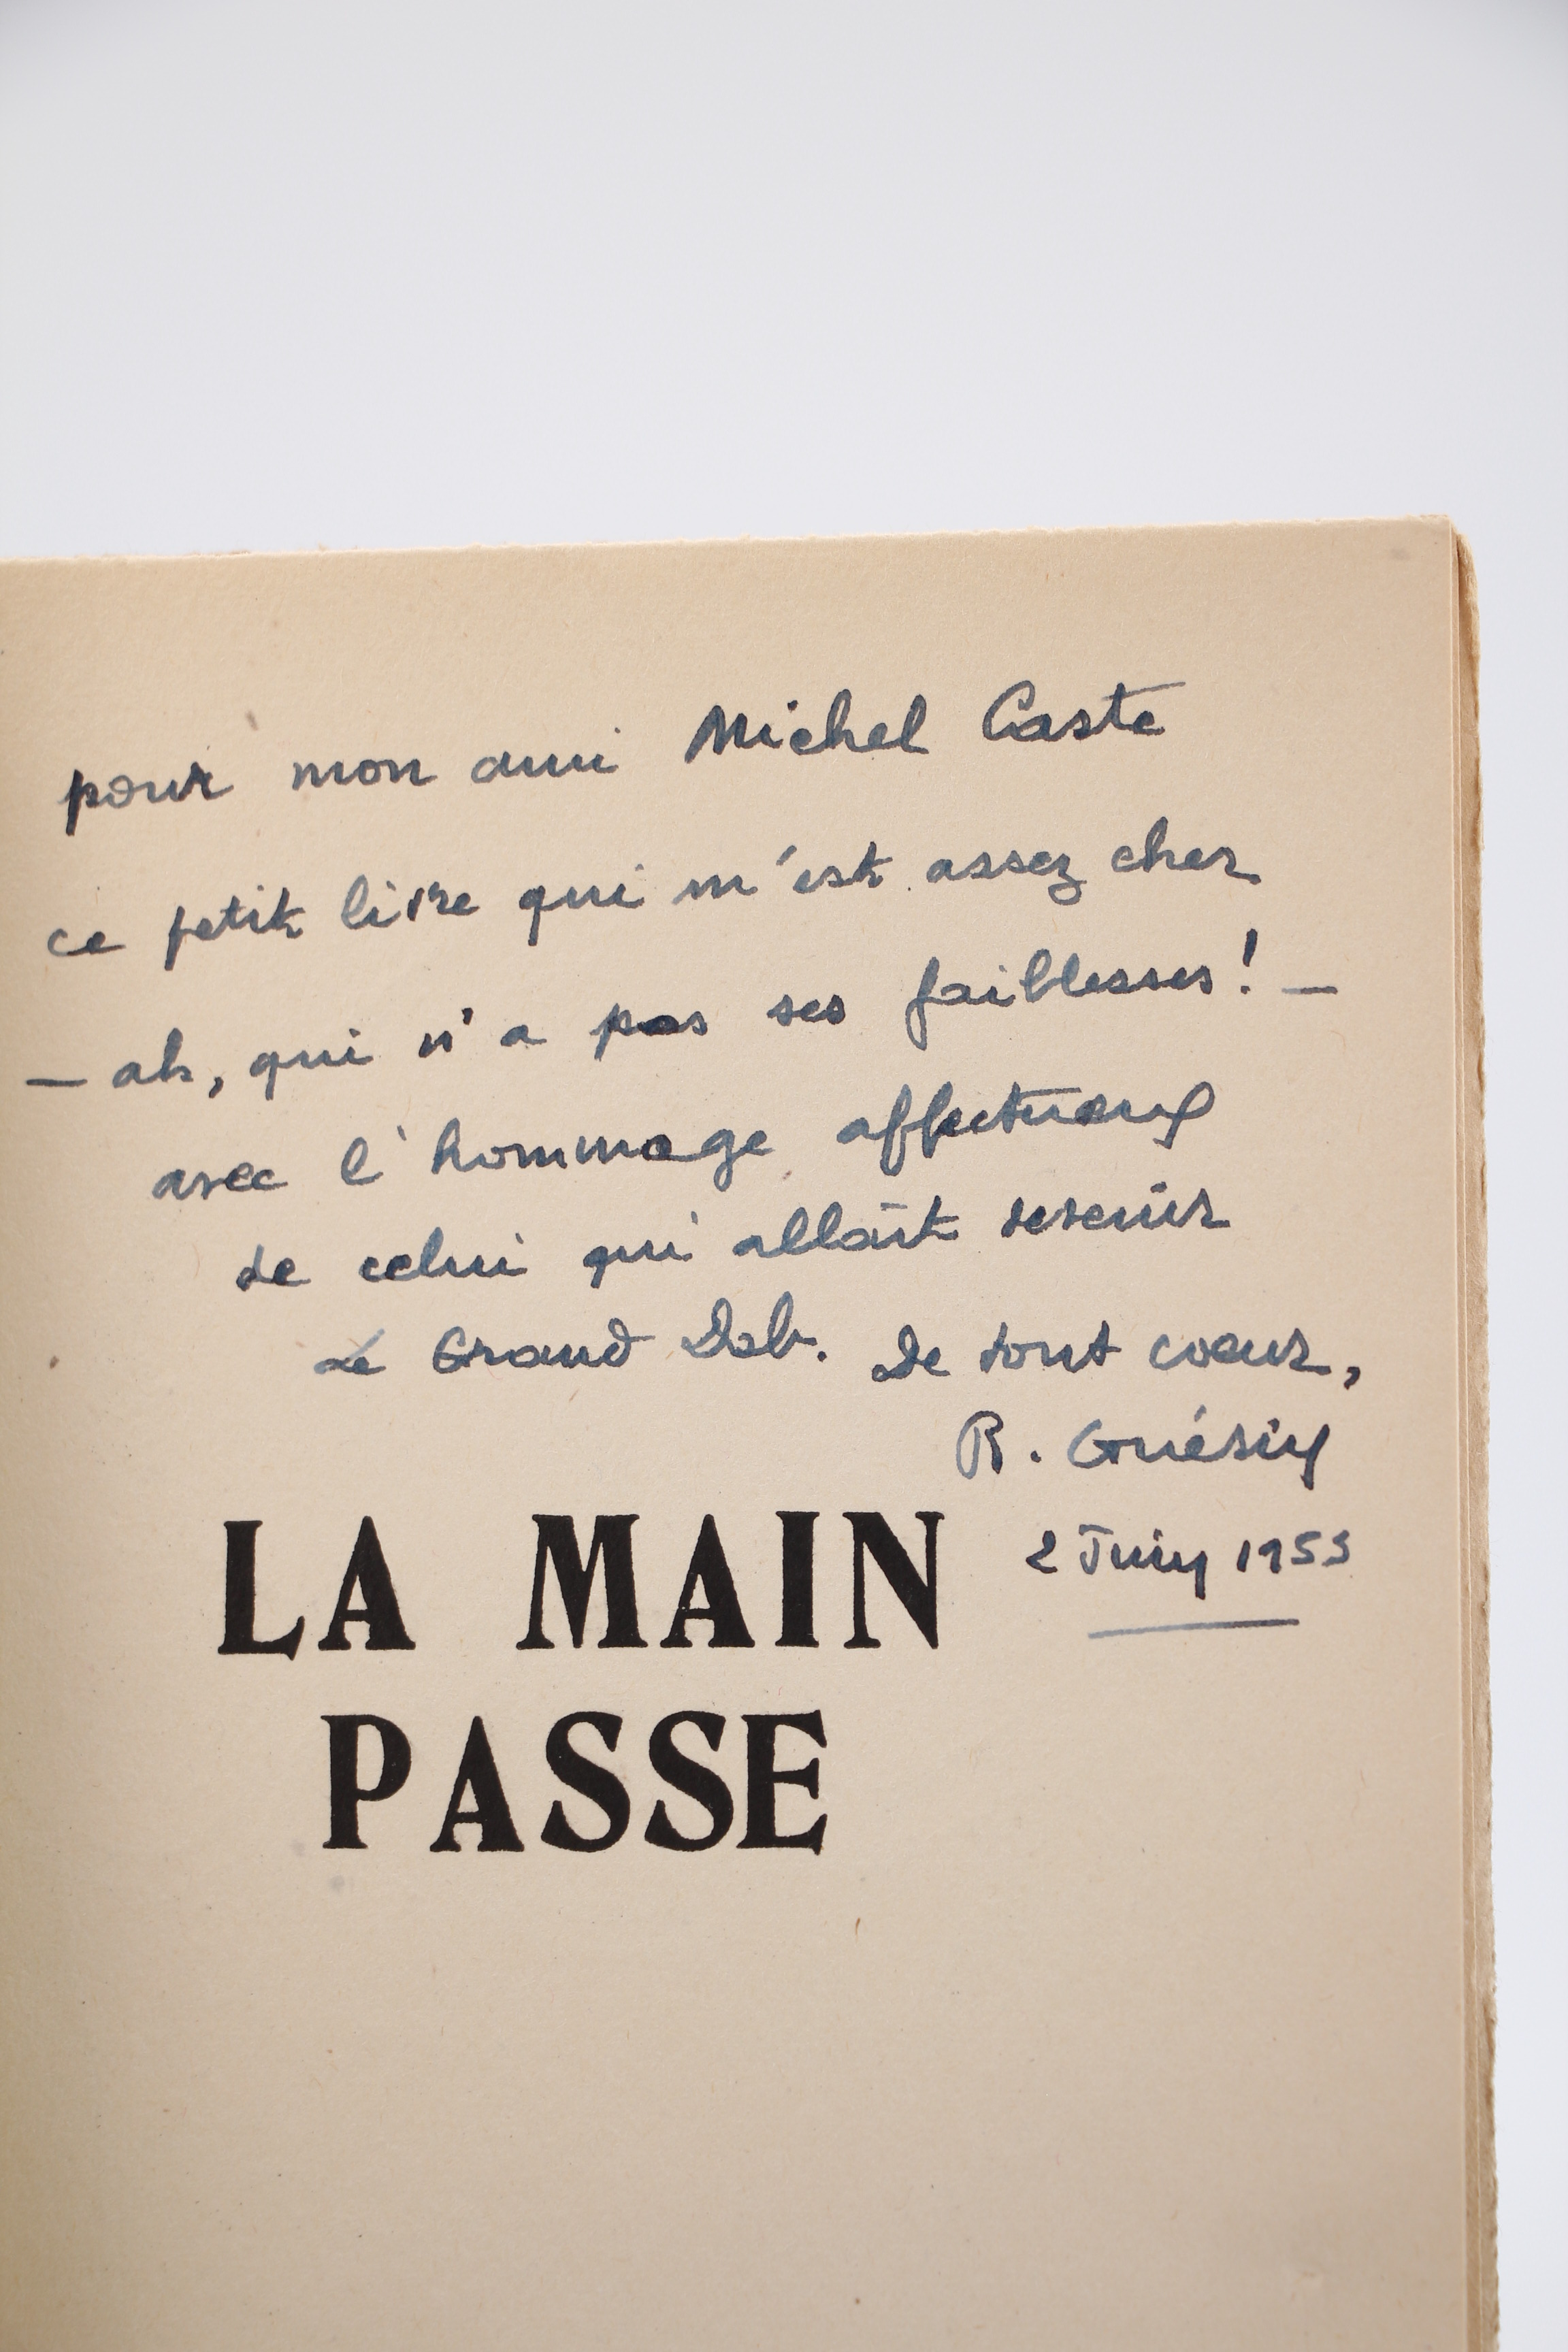 pour mon ami Michel Caste
ce petit livre qui m'est assez cher
— ah, qui n'a pas ses faiblesses! —
avec l'hommage affectueux
de celui qui allait devenir
Le Grand Dab. De tout coeur,
R. Guérin
2 Juin 1953
LA MAIN
PASSE